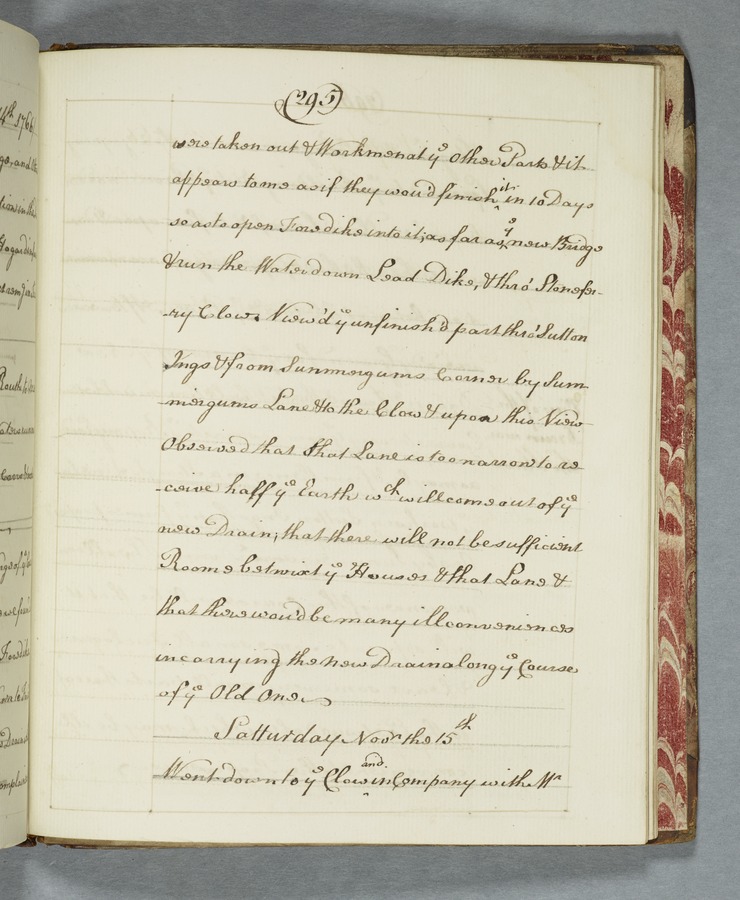 (295)
were taken out & Workmen at yᵉ other Parts & it
appears to me as if they wou'd finish it in 10 Days
so as to open Foredike into it; as far as yᵉ new Bridge
& run the Water down Lead Dike, & thro' Stonefer-
-ry Clow. View'd yᵉ unfinish'd part thro' Sutton
Ings & from Summergums Corner by Sum-
-mergums Lane & to the Clow & upon this View
Observed that that Lane is too narrow to re-
-ceive half yᵉ Earth wᶜʰ will come out of yᵉ
new Drain; that there will not be sufficient
Roome betwixt yᵉ Houses & that Lane &
that there wou'd be many ill conveniences
in carrying the new Drain along yᵉ Course
of yᵉ Old One
Satturday Novʳ the 15ᵗʰ
Went down to yᵉ Clow and in Company with Mʳ
4ᵗʰ 1766